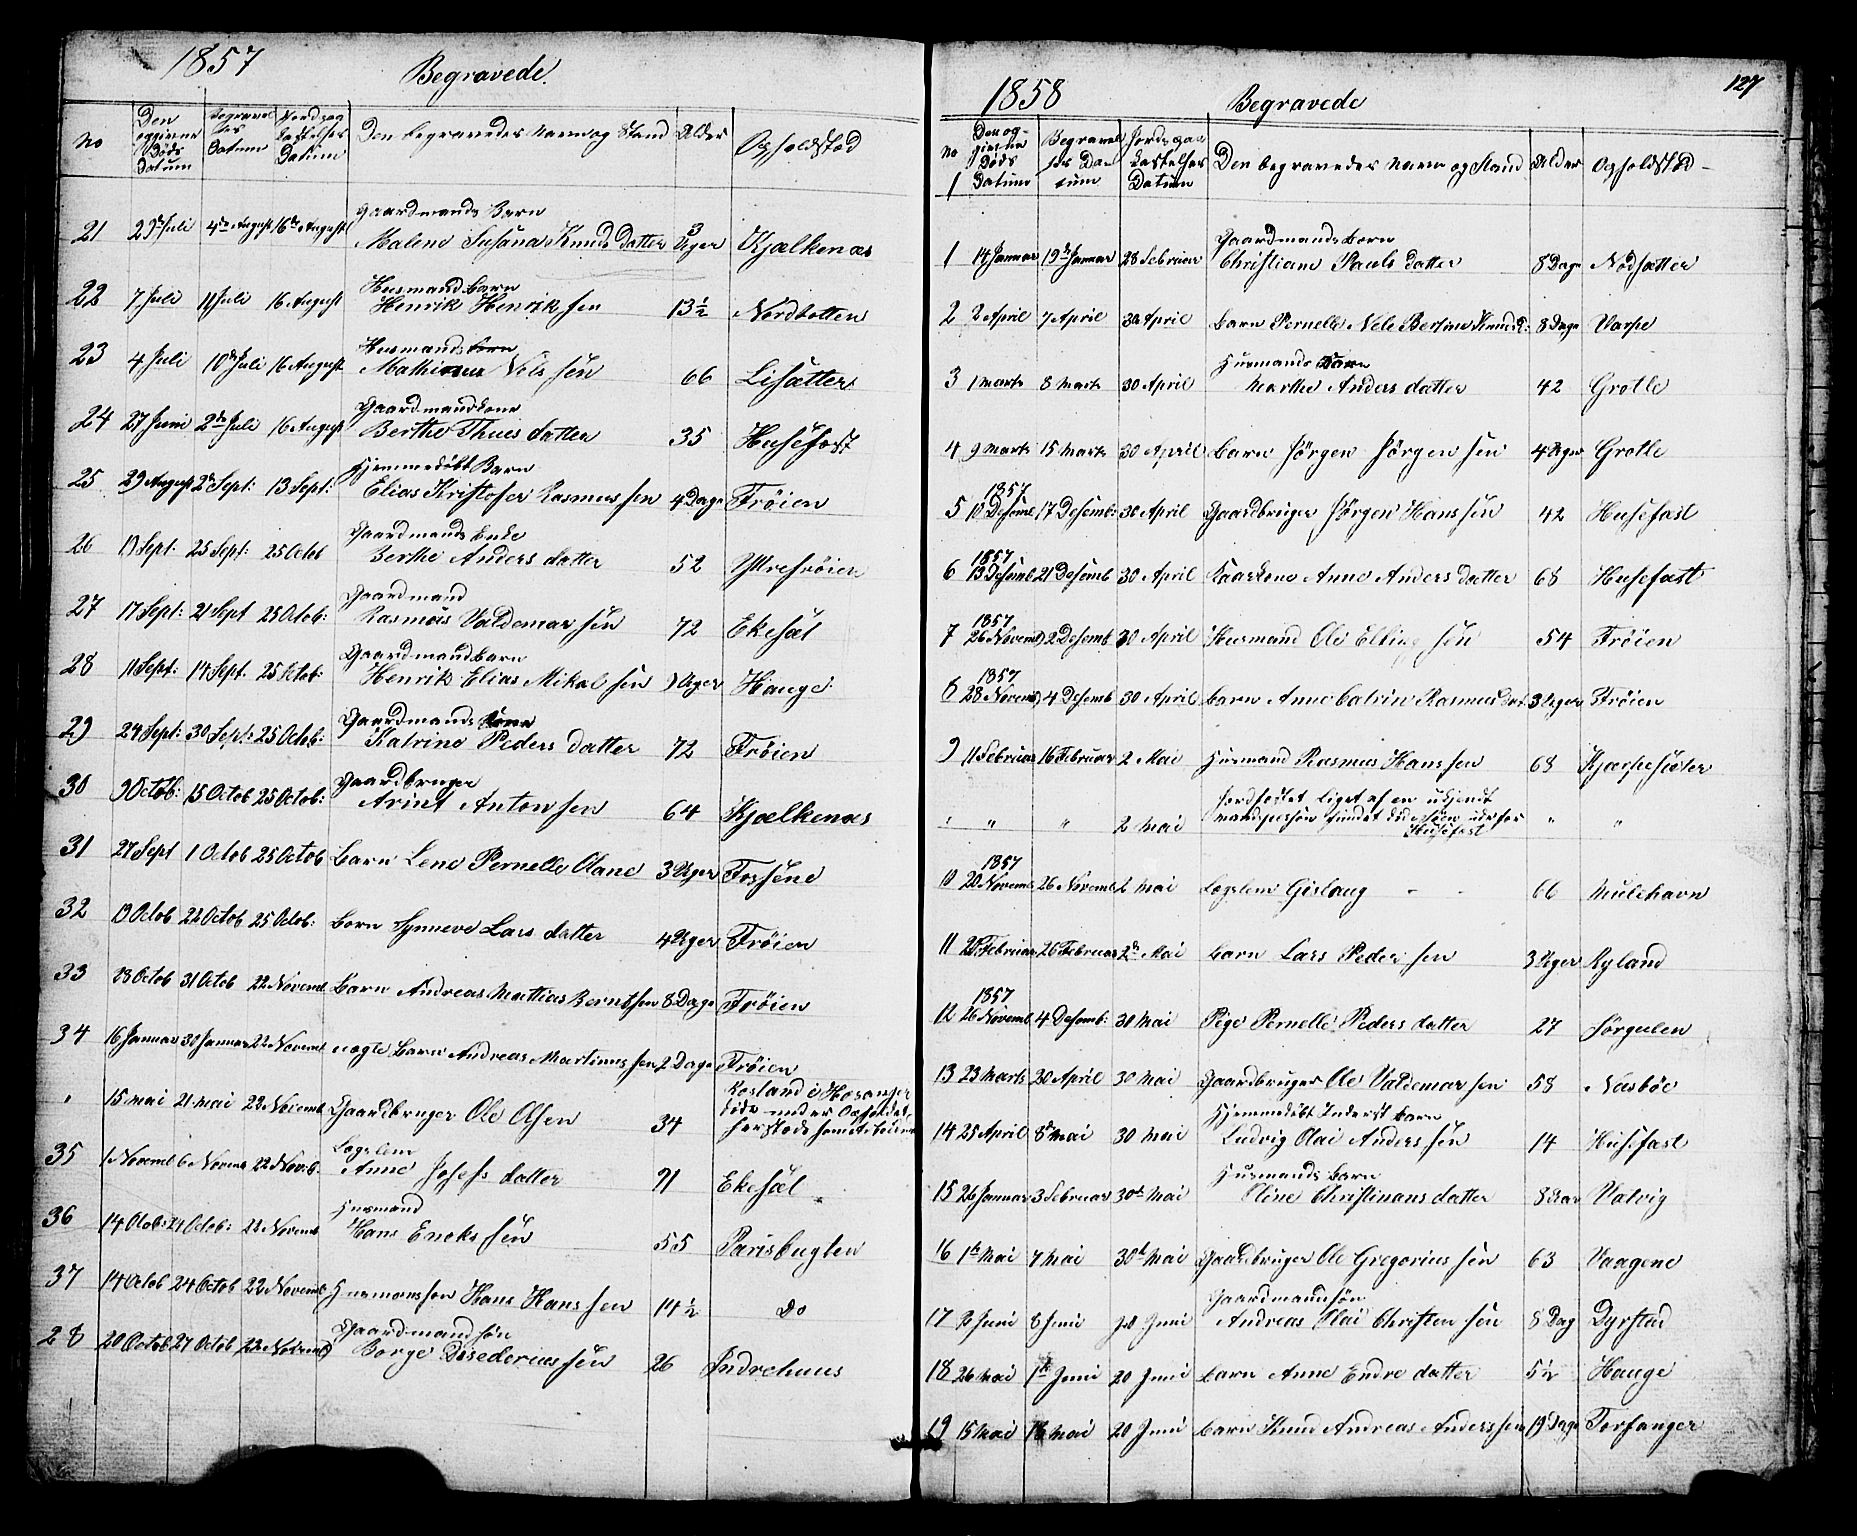 1857
Begravede.
No
Den opgivne Døds Datum
Begravelses Datum
Jordspaakastelses Datum
Den begravedes Navn og Stand
Alder
Opholdsted
Gaardmands Barn
21 29de Juli 4de August 16de August Malene Susana Knuds datter 3 Uger Kjælkenæs
Husmand barn
22 7 Juli 11 Juli 16 August Henrik Henrik sen 13½ Nordbotten
Husmands
23 4 Juli 10de Juli 16 August Nils sen 66 Lisætter
Gaardmandskone
24 27 Juni 2de Juli 16 August Berthe Thues datter 35 Husefast
Hjemmedøbt Barn
25 29 August 2de Sept: 13 Sept: Elias Kristofer Rasmus sen 4 Dage Frøien
Gaardmands Enke
26 19 Sept: 25 Sept: 25 Octob Berthe Anders datter 52 Yttrefrøien
Gaardmand
27 17 Sept: 21 Sept 25 Octob: Rasmus Valdemar sen 72 Ekesæt
Gaardmand barn
28 11 Sept: 14 Sept. 25 Octob: Henrik Elias Mikal sen Uger Hauge
Gaardmands kone
29 24 Sept: 30 Sept: 25 Octob: Katrine Peders datter 72 Frøien
Gaardbruger
30 9 Octob: 15 Octob 25 Octob: Arint Anton sen 64 Kjælkenæs
31 27 Sept 1 Octob 25 Octob Barn Lene Pernelle Olane 3 Uger Fossene
32 19 Octob 22 Octob 25 Octob: Barn Synneve Lars datter 4 Uger Frøien
33 23 Octob 31 Octob 22 Novemb Barn Andreas Mathias Berntsen 8 Dage Frøien
34 16 Januar 30 Januar 22 Novemb uægte Barn Andreas Martinus sen 2 Dage Frøien
" 15 Mai 21 Mai 22 Novemb Gaardbruger Ole Olsen 34 Rosland i Hosanger
døde under Ophold
Lægslem
35 1 Novemb 6 Novemb 22 Novemb. Anne Josefs datter 71 Ekesæt
Husmand
36 14 Octob: 24 Octob: 22 Novemb Hans Encks sen 55 Parisbugten
37 14 Octob 24 Octob 22 Novemb Husmanssøn Hans Hans sen 14½ Do
Gaardmand søn
28 20 Octob 27 Octob 22 Novemb Børge Disederius sen 26 Indrehuus
127
1858
Begravede
No
1
Den opgivne Døds Datum
Begravelses Datum
Jordspaakastelses Datum
Den begravedes Navn og Stand
Alder
Opholdsted
Gaardmands barn
1 14 Januar 19de Januar 28 Februar Christiane Pauls datter 8 Dage Nødsætter
2 2 April 7 April 30 April barn Pernelle Nele Bertine Knuds D: 8 Dage Varpe
Husmands
3 1 Marts 8 Marts 30 April Marthe Anders datter 42 Grotle
4 9 Marts 15 Marts 30 April barn Jørgen Jørgen sen 4 Uger Grotle
1857
5 10 Desemb 17 Desemb: 30 April Gaardbruger Jørgen Hans sen 42 Husefast
1857
6 13 Desemb 21 Desemb 30 April Kaarkone Anne Anders datter 68 Husefast
1857
7 26 Novemb 2 Desemb 30 April Husmand Ole Elling sen 54 Frøien
1857
8 28 Novemb 4 Desemb 30 April barn Anne Catrine Rasmus Dat. 3 Uger Frøien
9 11 Februar 16 Februar 2 Mai Husmand Rasmus Hans sen 68 Kjærpesæter
Jordfæstet Liget af en ukjendt
" " " 2 Mai Mandsperson fundet død i Søen udefor " "
Husefast
1857
10 20 Novemb 26 Novemb 2 Mai Lægslem Gislaug - - 66 Mulehavn
11 20 Februar 26 Februar 2de Mai barn Lars Peder sen 3 Uger Ryland
1857
12 26 Novemb 4 Desemb: 30 Mai Pige Pernelle Peders datter 27 Sørgulen
13 23 Marts 20 April 30 Mai Gaardbruger Ole Valdemar sen 58 Næsbøe
Hjemmedøbt Inderst barn
14 25 April 8de Mai 30 Mai Ludvig Olai Anders sen 14 Husefast
Husmands barn
15 26 Januar 3 Februar 30de Mai Oline Christinans datter 8 Aar Vatvig
16 1te Mai 7 Mai 30te Mai Gaardbruger Ole Gregorius sen 63 Vaagene
Gaardmannsøn
17 2 Juni 8 Juni 20 Juni Andreas Olai Christen sen 8 Dag Dyrstad
18 26 Mai 1te Juni 20 Juni barn Anne Endre datter 5½ Hauge
19 15 Mai 18 Mai 20 Juni barn Knud Andreas Anders sen 19 Dage Torfanger